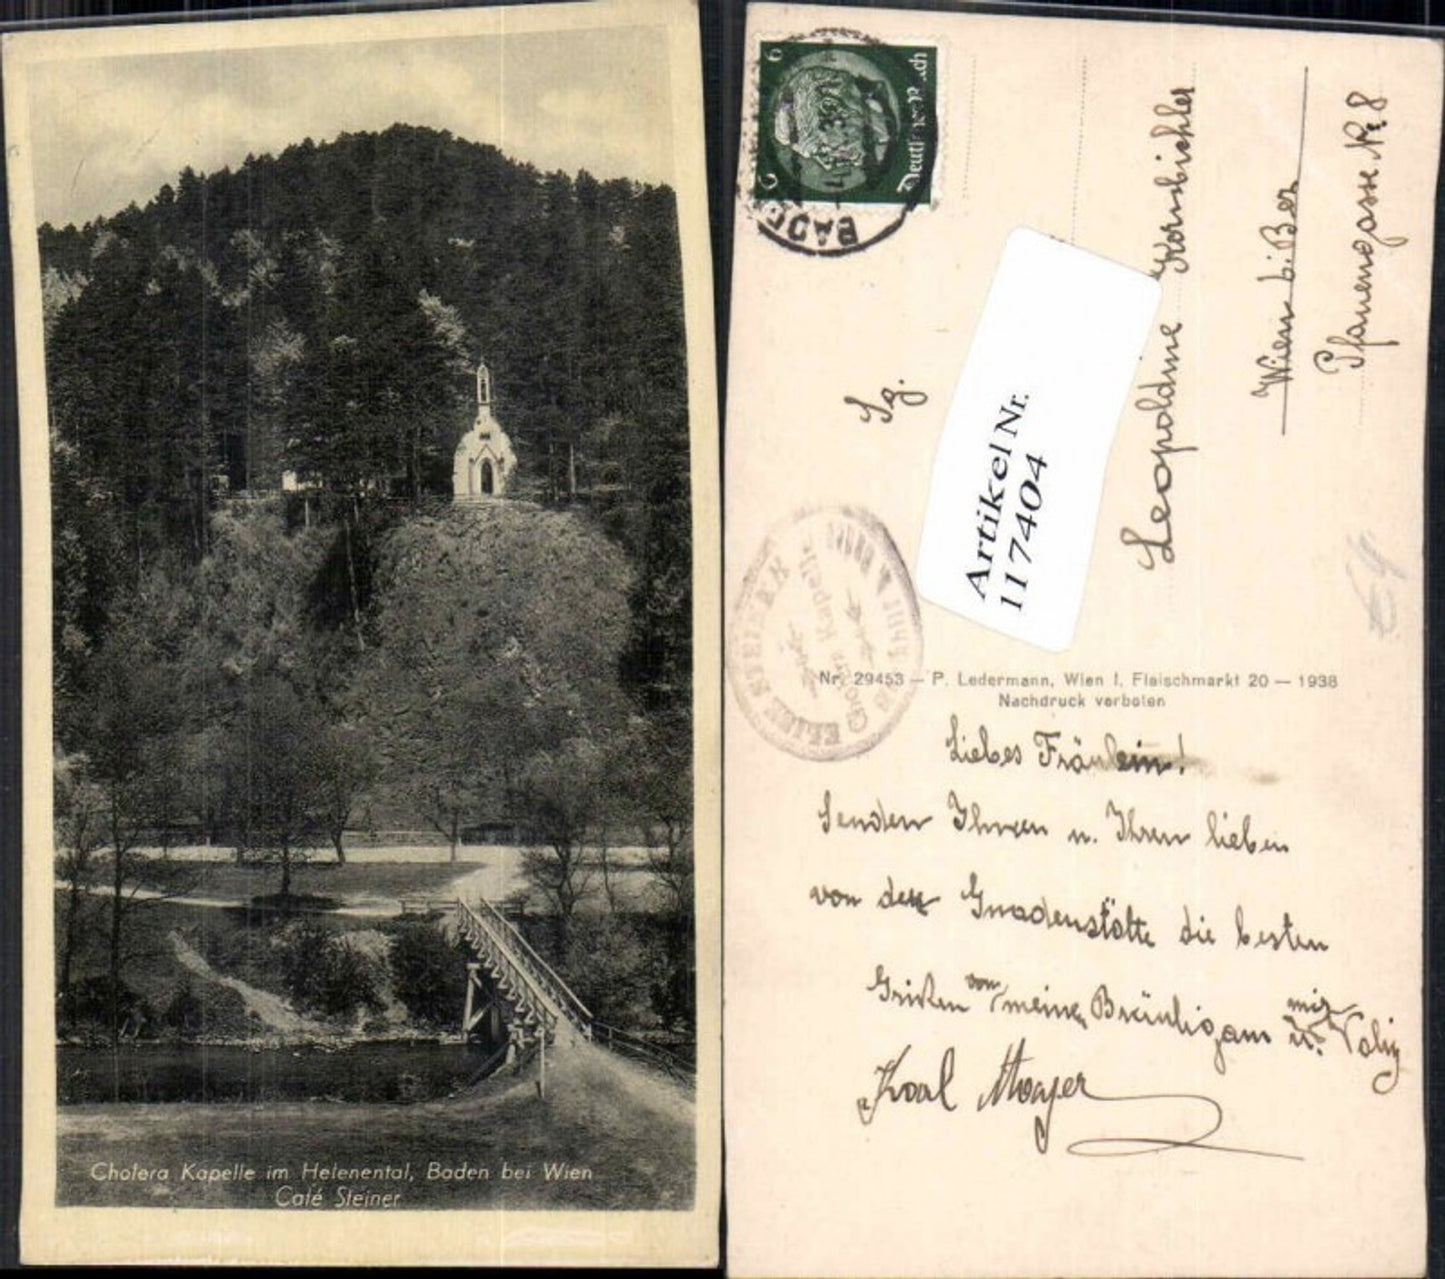 Cholera Kapelle im Helenental, Baden bei Wien
Café Steiner
6
6
BADE
Sg.
Leopoldine Kornbichler
Wien
Pfauengasse Nr. 8
Artikel Nr.
117404
Cholera Kapelle
Nr. 29453 — P. Ledermann, Wien I, Fleischmarkt 20 — 1938
Nachdruck verboten
Liebes Fräulein!
Senden Ihnen u. Ihren lieben
von der Gnadenstätte die besten
von meinem Bräutigam mit
Karl Mayer